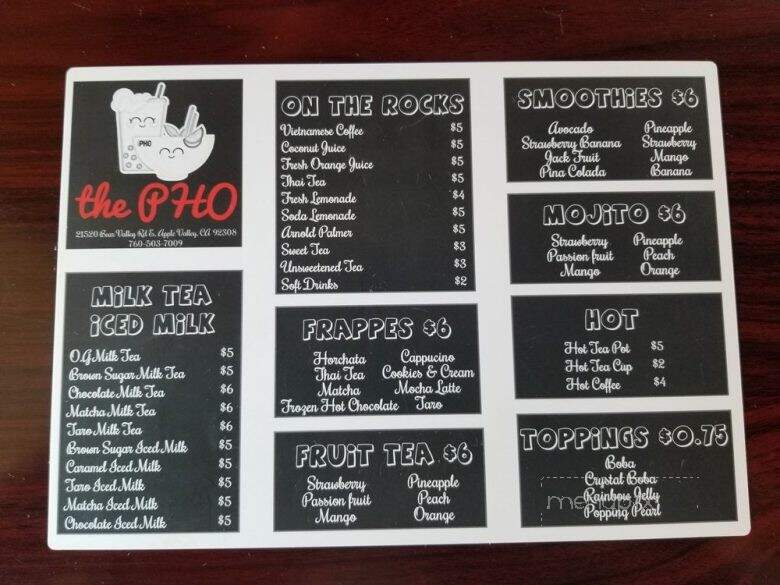 PHO
the PHO
21520 Bear Valley Rd E, Apple Valley, CA 92308
760-503-7009
MILK TEA
ICED MILK
O.G Milk Tea $5
Brown Sugar Milk Tea $5
Chocolate Milk Tea $6
Matcha Milk Tea $6
Taro Milk Tea $6
Brown Sugar Iced Milk $5
Caramel Iced Milk $5
Taro Iced Milk $5
Matcha Iced Milk $5
Chocolate Iced Milk $5
ON THE ROCKS
Vietnamese Coffee $5
Coconut Juice $5
Fresh Orange Juice $5
Thai Tea $5
Fresh Lemonade $4
Soda Lemonade $5
Arnold Palmer $5
Sweet Tea $3
Unsweetened Tea $3
Soft Drinks $2
FRAPPES $6
Horchata Cappucino
Thai Tea Cookies & Cream
Matcha Mocha Latte
Frozen Hot Chocolate Taro
FRUIT TEA $6
Strawberry Pineapple
Passion fruit Peach
Mango Orange
SMOOTHIES $6
Avocado Pineapple
Strawberry Banana Strawberry
Jack Fruit Mango
Pina Colada Banana
MOJITO $6
Strawberry Pineapple
Passion fruit Peach
Mango Orange
HOT
Hot Tea Pot $5
Hot Tea Cup $2
Hot Coffee $4
TOPPINGS $0.75
Boba
Crystal Boba
Rainbow Jelly
Popping Pearl